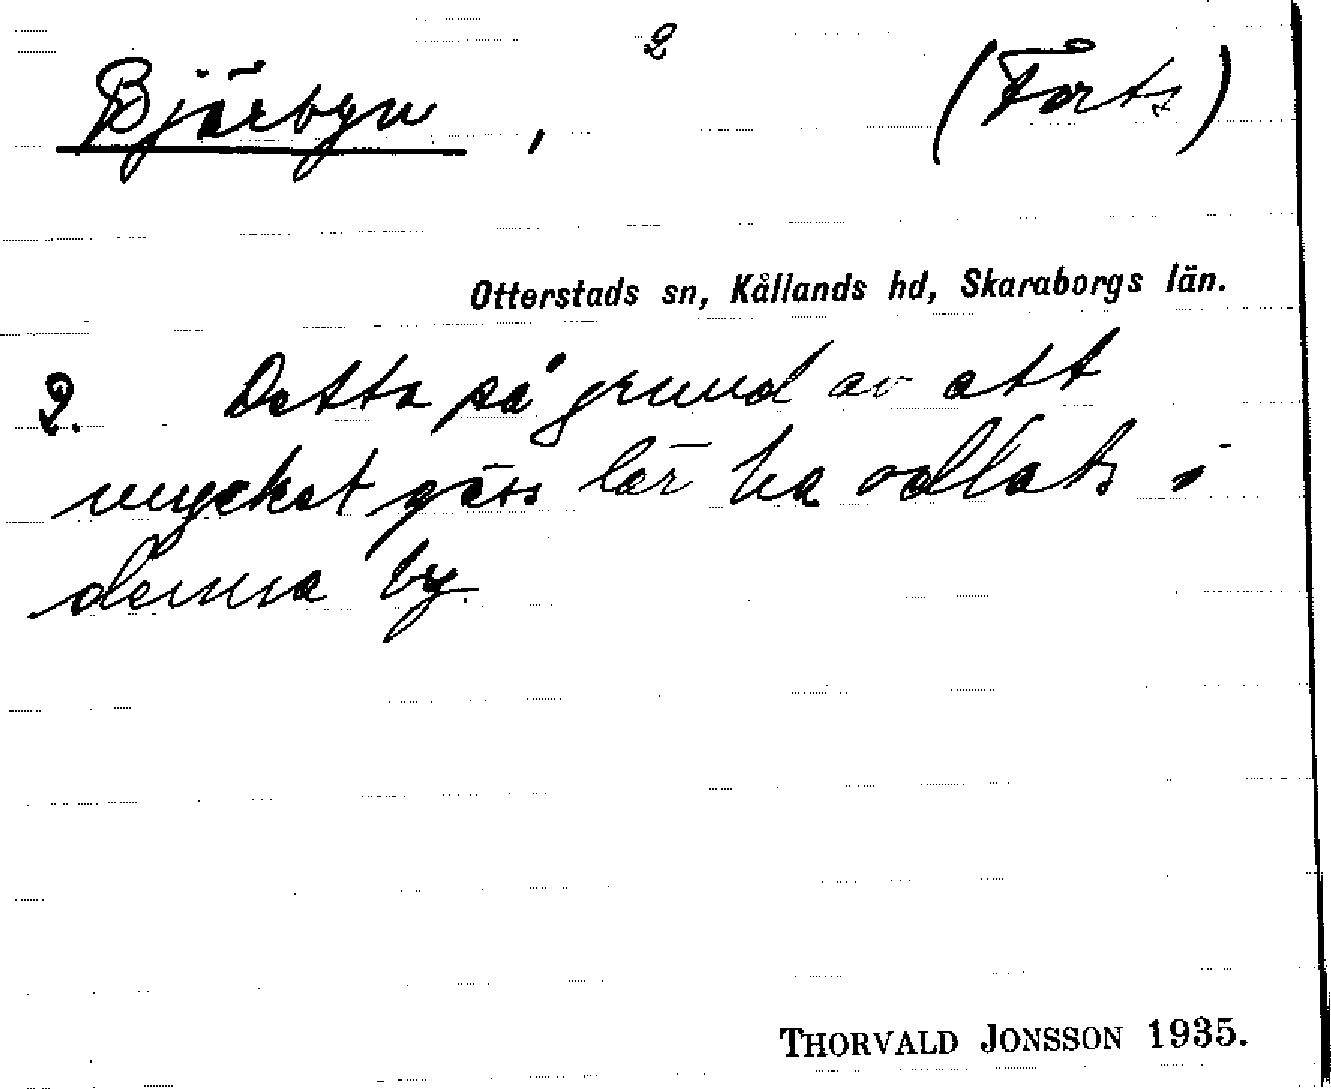 2
Bjärbyn, (Forts)
Otterstads sn, Kållands hd, Skaraborgs län.
2. Detta på grund av att
mycket gäss lär ha odlats i
denna by.
THORVALD JONSSON 1935.